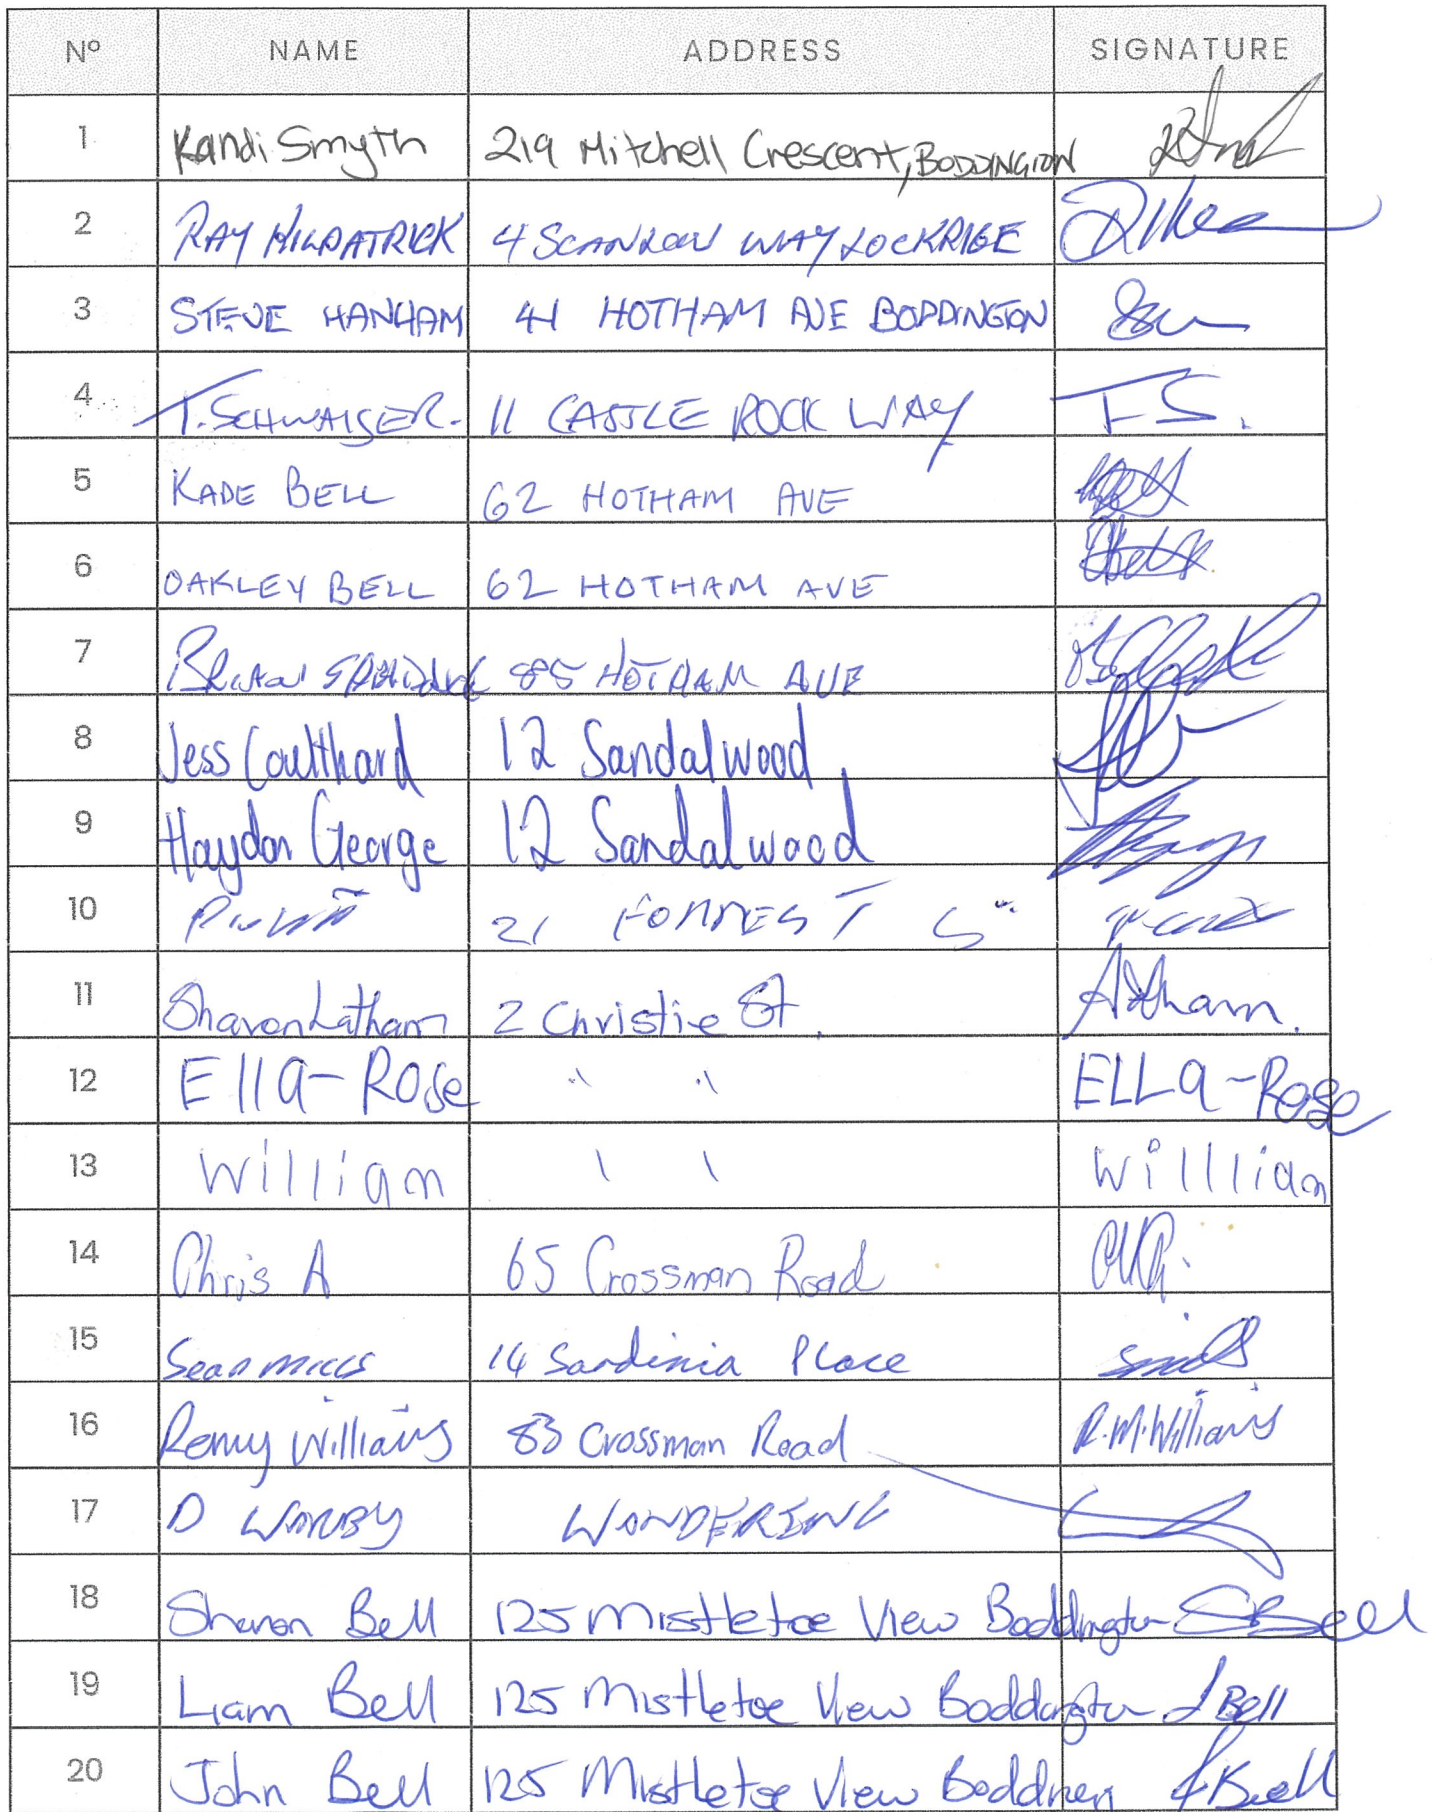 Nº NAME ADDRESS SIGNATURE
1 Kandi Smyth 219 Mitchell Crescent, BODDINGTON
2 RAY KILPATRICK 4 SCANLON WAY LOCKRIGE
3 STEVE HANHAM 41 HOTHAM AVE BODDINGTON
4 T. SCHWAIGER. 11 CASTLE ROCK WAY T S.
5 KADE BELL 62 HOTHAM AVE
6 OAKLEY BELL 62 HOTHAM AVE
7 85 HOTHAM AVE
8 Jess Coulthard 12 Sandalwood
9 Haydon George 12 Sandalwood
10 21 FORREST S
11 Sharon Latham 2 Christie St. Latham.
12 Ella-Rose " " ELLa-Rose
13 William \ \ Willlian
14 Chris A 65 Crossman Road
15 Sean Mills 14 Sardinia Place
16 Remy Williams 83 Crossman Road R.M.Williams
17 D WARBY WANDERING
18 Sharon Bell 125 Mistletoe View Boddington SBell
19 Liam Bell 125 Mistletoe View Boddington LBell
20 John Bell 125 Mistletoe View JBell